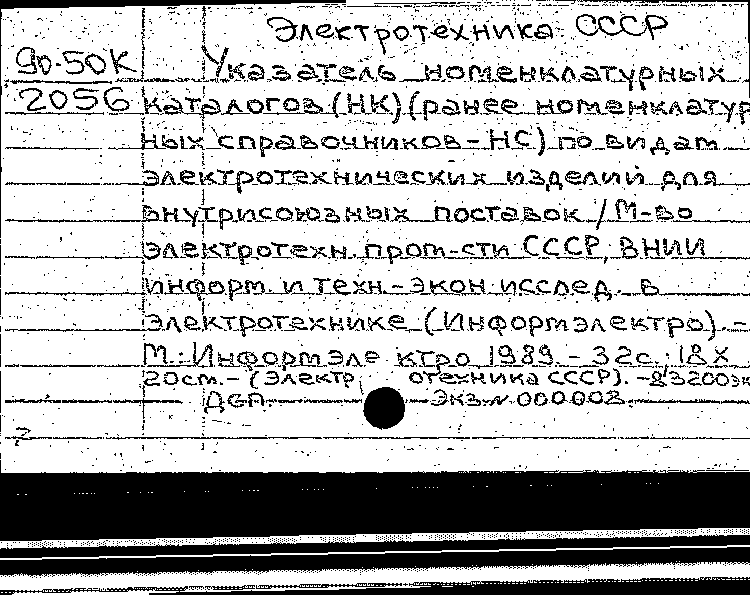 Электротехника СССР
90-50К Указатель номенклатурных
2056 каталогов (НК) (ранее номенклатур
ных справочников - НС) по видам
электротехнических изделий для
внутрисоюзных поставок / М-во
электротехн. пром-сти СССР, ВНИИ
информ. и техн.-экон. исслед. в
электротехнике (Информэлектро). -
М.: Информэле ктро 1989. - 32с.; 18 X
20см. - (Электр отехника СССР). - 3200эк
ДСП. Экз. N 000002.
2